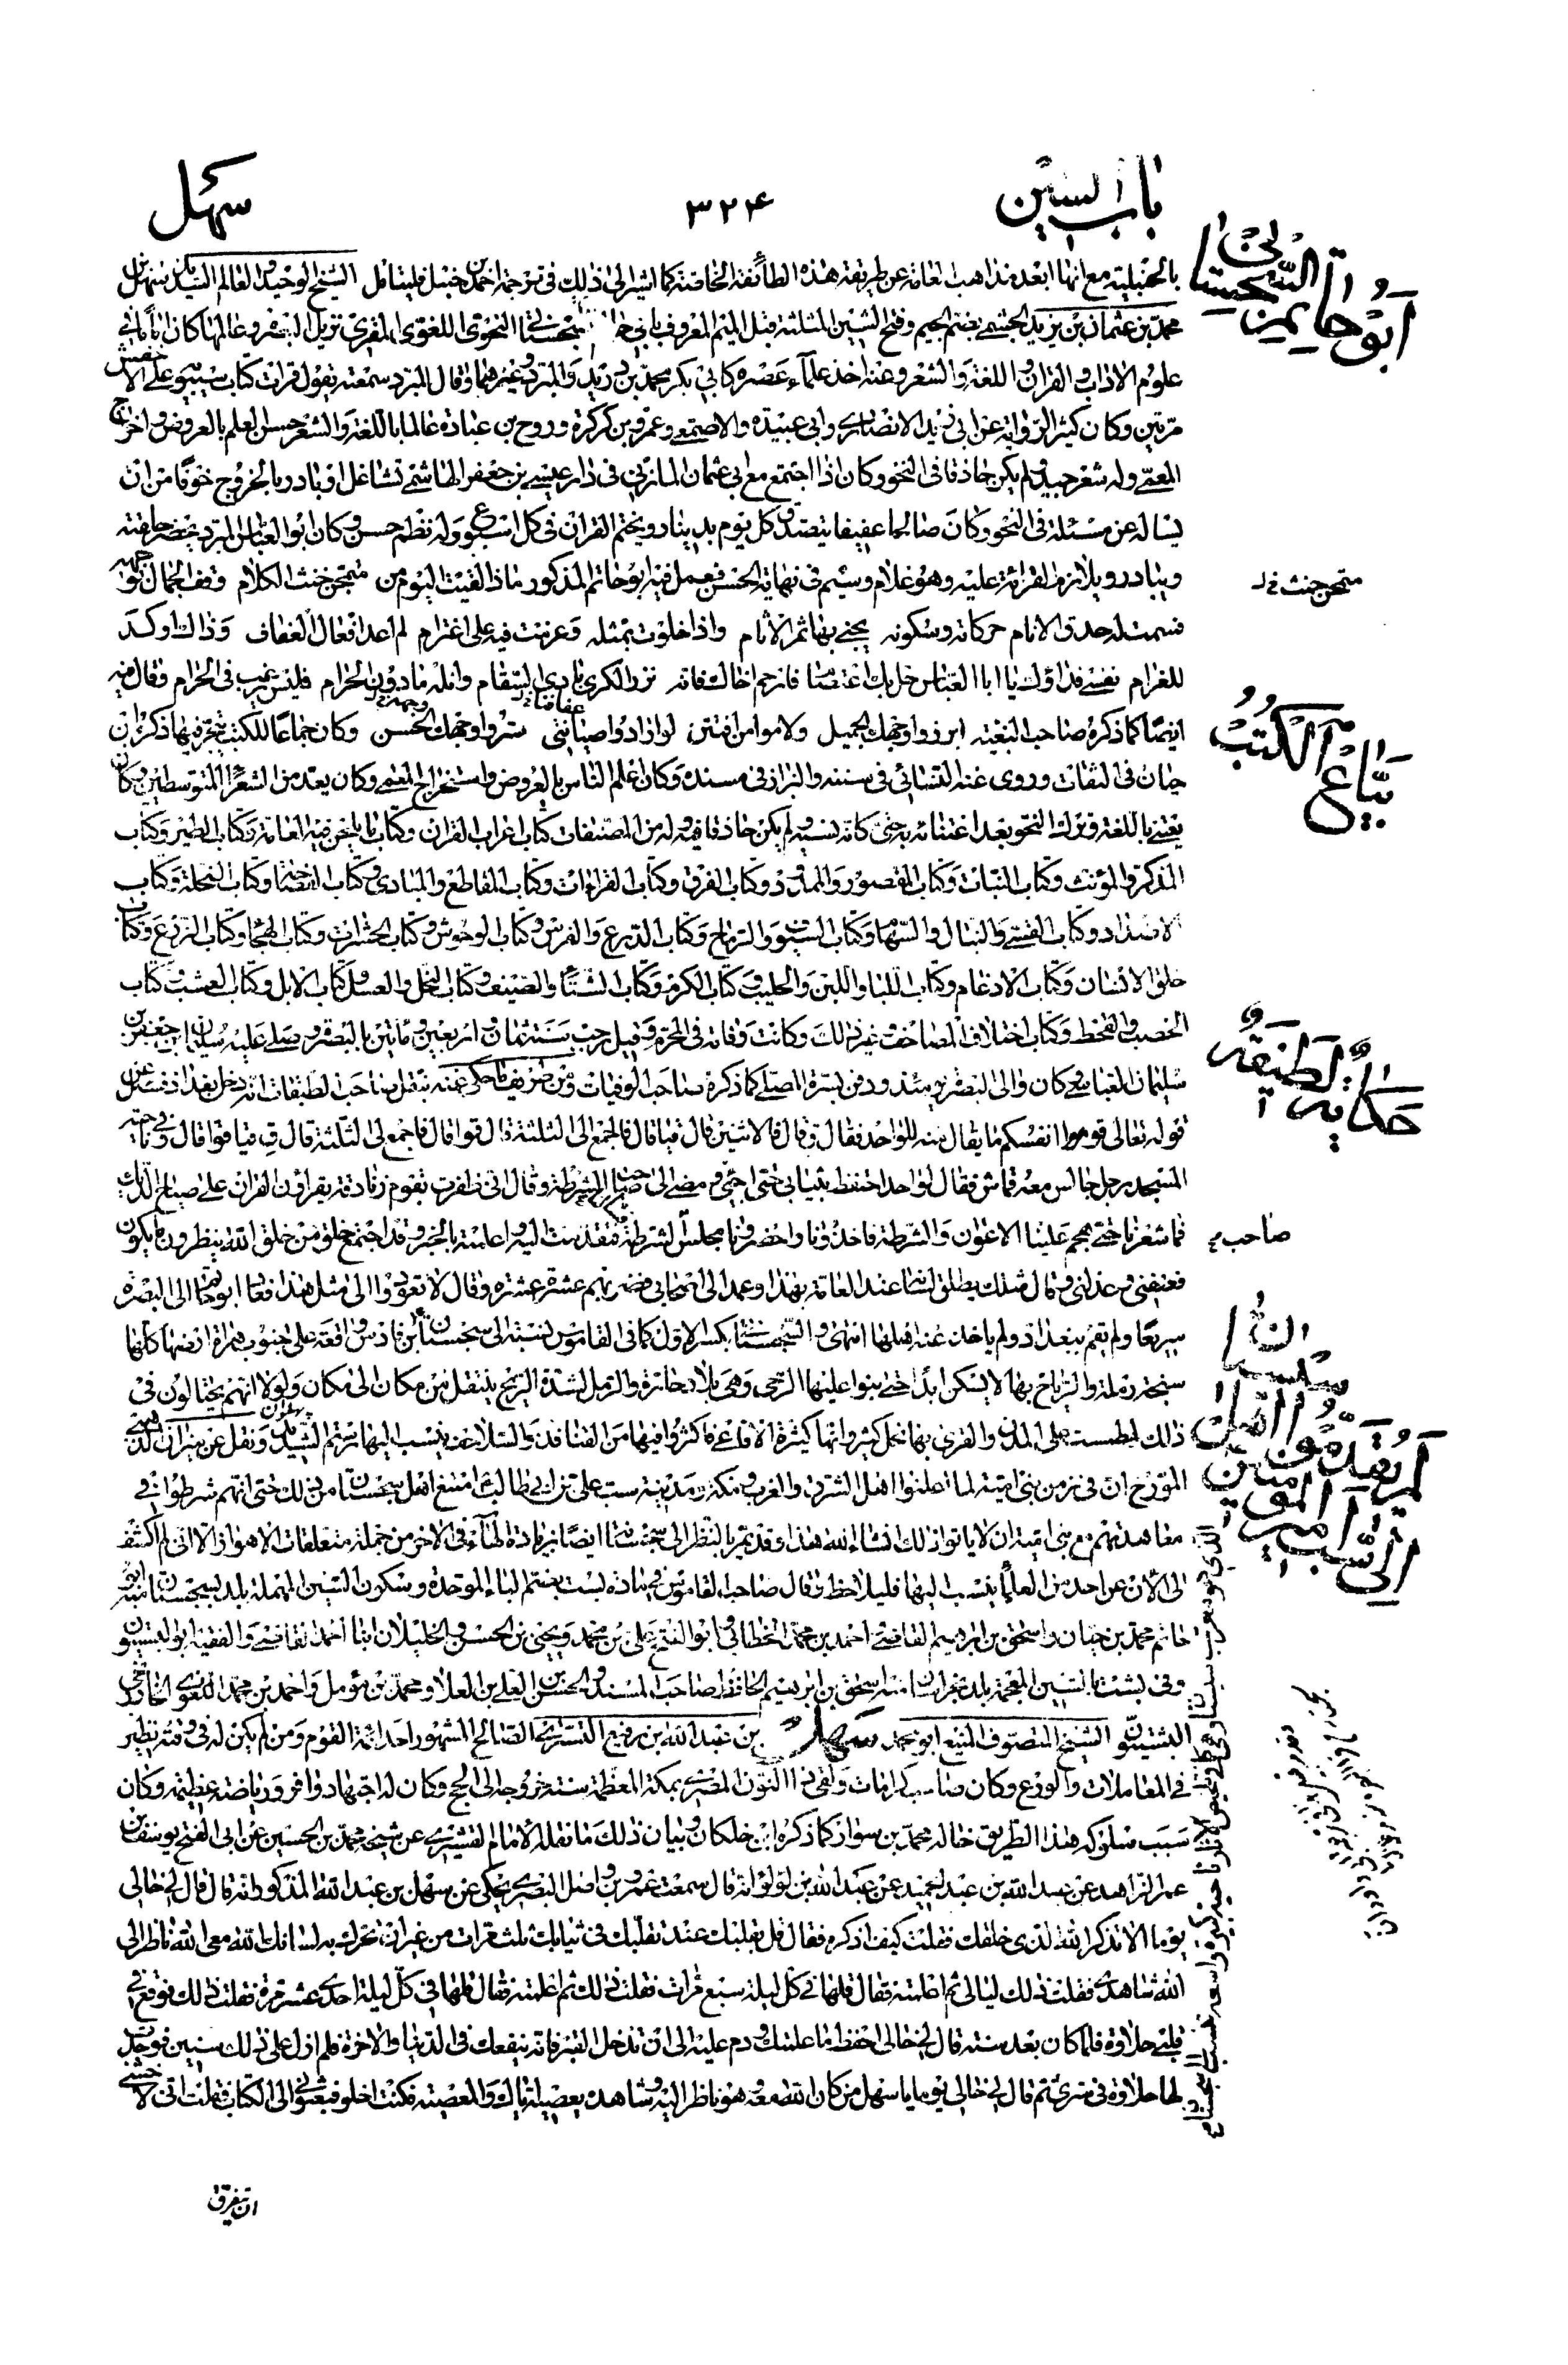 باب السين
٣٢۴
سهل
بالحنبلية مع انها ابعد مذاهب العامة عن طريقة هذه الطائفة الخاصة كما اشير الى ذلك في ترجمة احمد بن حنبل فليتأمل الشيخ الوحيد والعالم السديد سهل بن
محمد بن عثمان بن يزيد الجشمي بضم الجيم وفتح الشين المثلثة قبل الميم المعروف بابي حاتم السجستاني النحوي اللغوي المقري نزيل البصرة وعالمها كان اماما في
علوم الاداب والقران واللغة والشعر وعنه اخذ علماء عصره كابي بكر محمد بن دريد والمبرد وغيرهما وقال المبرد سمعته يقول قرات كتاب سيبويه على الاخفش
مرتين وكان كثير الرواية عن ابي زيد الانصاري وابي عبيدة والاصمعي وعمرو بن كركرة وروح بن عبادة عالما باللغة والشعر حسن العلم بالعروض واخراج
المعمى وله شعر جيد ولم يكن حاذقا في النحو وكان اذا اجتمع مع ابي عثمان المازني في دار عيسى بن جعفر الهاشمي تشاغل او بادر بالخروج خوفا من ان
يساله عن مسئلة في النحو وكان صالحا عفيفا يتصدق كل يوم بدينار ويختم القران في كل اسبوع وله نظم حسن وكان ابو العباس المبرد يحضر حلقته
ويبادر ويلازم القرائة عليه وهو غلام وسيم في نهاية الحسن فعمل فيه ابوحاتم المذكور ماذا لقيت اليوم من متمجن خنث الكلام وقف الجمال بوجهه
فسمت له حدق الانام حركاته وسكونه يجني بها ثمر الاثام واذا خلوت بمثله وعزمت فيه على اغترام لم اعد افعال العفاف وذاك اوكد
للغرام نفسي فداؤك يا ابا العباس حل بك اعتصامي فارحم اخاك فانه نزر الكرى بادي السقام وانله مادون الحرام فليس يرغب في الحرام وقال فيه
ايضا كما ذكره صاحب البغية ابرزوا وجهك الجميل ولاموا من افتتن لو ارادوا صيانتي ستروا وجهك الحسن وكان جماعا للكتب يتجر فيها ذكره ابن
حبان في الثقات وروى عنه النسائي في سننه والبزار في مسنده وكان اعلم الناس بالعروض واستخراج المعمى وكان يعد من الشعراء المتوسطين وكان
يعتني باللغة وترك النحو بعد اعتنائه به حتى كانه نسيه ولم يكن حاذقا فيه وله من المصنفات كتاب اعراب القران وكتاب ما يلحن فيه العامة وكتاب الطير وكتاب
المذكر والمؤنث وكتاب النبات وكتاب المقصور والممدود وكتاب الفرق وكتاب القراءات وكتاب المقاطع والمبادي وكتاب الفصاحة وكتاب النحلة وكتاب
الاضداد وكتاب القسي والنبال والسهام وكتاب السيوف والرماح وكتاب الدرع والفرس وكتاب الوحوش وكتاب الحشرات وكتاب الهجا وكتاب الزرع وكتاب
خلق الانسان وكتاب الادغام وكتاب اللبا واللبن والحليب وكتاب الكرم وكتاب الشتاء والصيف وكتاب النحل والعسل وكتاب الابل وكتاب العشب وكتاب
الخصب والقحط وكتاب اختلاف المصاحف وغير ذلك وكانت وفاته في المحرم وقيل رجب سنة ثمان واربعين ومائتين بالبصرة وصلى عليه سليمان بن جعفر بن
سليمان العباسي كان والى البصرة يومئذ ودفن بسرة المصلى كما ذكره صاحب الوفيات ومن طريف ما حكى عنه بنقل صاحب الطبقات انه دخل بغداد فسئل عن
قوله تعالى قوموا انفسكم ما يقال منه للواحد فقال ق قال فالاثنين قال قيا قال فالجمع الى الثلثة قال قوا قال فاجمع لي الثلثة قال ق قيا قوا قال وفي ناحية
المسجد رجل جالس معه قماش فقال لواحد احتفظ بثيابي حتى اجيء ومضى الى صاحب الشرطة وقال اني ظفرت بقوم زنادقة يقراون القران على صياح الديك
فما شعرنا حتى هجم علينا الاعوان والشرطة فاخذونا واحضرونا مجلس الشرطة فتقدمت اليه واعلمته بالخبر وقد اجتمع خلق من خلق الله ينظرون ما يكون
فعنفني وعذلني وقال مثلك يطلق لسانه عند العامة بهذا وعمد الى اصحابي فضربهم عشرة عشرة وقال لا تعودوا الى مثل هذا فعاد ابوحاتم الى البصرة
سريعا ولم يقم ببغداد ولم ياخذ عنه اهلها انتهى والسجستاني بكسر الاول كما في القاموس نسبة الى سجستان
سبخة رملة والرياح بها لا يسكن ابدا حتى بنوا عليها الرحى وهي بلاد حارة والرمل لشدة الريح ينتقل من مكان الى مكان ولولا انهم يحتالون في
ذلك لطمست على المدن والقرى بها نخل كثير وانها كثيرة الافاعي فاكثروا فيها من القنافذ والسلاحف ينسب اليها رستم الشديد ونقل عن ميزان الذهبي
المورخ ان في زمن بني امية لما اعلنوا اهل الشرق والغرب ومكة ومدينة سب علي بن ابي طالب امتنع اهل سجستان من ذلك حتى انهم شرطوا في
معاهدتهم مع بني امية ان لا ياتوا ذلك انشاء الله هذا وقد يمر بالنظر الى سجستان ايضا بزيادة الهاء في الاخر من جملة متعلقات الاهواز الا اني لم اكشف
الى الان عن احد من العلماء ينسب اليها فليلاحظ وقال صاحب القاموس في مادة بست بضم الباء الموحدة وسكون السين المهملة بلد بسجستان منه ابو
حاتم محمد بن حبان واسحق بن ابراهيم القاضي احمد بن محمد الخطابي وابو الفتح علي بن محمد ويحيى بن الحسن والخليلان ابنا احمد القاضي والفقيه ابو البستيون
وفي بشت بالشين المعجمة بلد بخراسان منه اسحق بن ابراهيم الحافظ صاحب المسند والحسن بن العلي بن العلاء ومحمد بن مؤمل واحمد بن محمد اللغوي الخارزنجي
البشتيون الشيخ المتصوف المنيع ابو محمد سهل بن عبد الله بن رفيع التستري الصالح المشهور احد ائمة القوم ومن لم يكن له في وقته نظير
في المعاملات والورع وكان صاحب كرامات ولقى ذا النون المصري بمكة المعظمة سنة خروجه الى الحج وكان له اجتهاد وافر ورياضة عظيمة وكان
سبب سلوكه هذا الطريق خاله محمد بن سوار كما ذكره ابن خلكان وبيان ذلك ما نقله الامام القشيري عن شيخه محمد بن الحسين عن ابي الفتح يوسف بن
عمر الزاهد عن عبد الله بن عبد الحميد عن عبد الله بن لؤلؤ انه قال سمعت عمرو بن واصل البصري يحكي عن سهل بن عبد الله المذكور انه قال قال لي خالي
يوما الا تذكر الله الذي خلقك فقلت كيف اذكره فقال قل بقلبك عند تقلبك في ثيابك ثلث مرات من غير ان تحرك به لسانك الله معي الله ناظر الي
الله شاهدي فقلت ذلك ليالي ثم اعلمته فقال قلها في كل ليلة سبع مرات فقلت ذلك ثم اعلمته فقال قلها في كل ليلة احدى عشر مرة فقلت ذلك فوقع في
قلبي حلاوة فلما كان بعد سنة قال لي خالي احفظ ما علمتك ودم عليه الى ان تدخل القبر فانه ينفعك في الدنيا والاخرة فلم ازل على ذلك سنين فوجدت
لها حلاوة في سري ثم قال لي خالي يوما يا سهل من كان الله معه وهو ناظر اليه وشاهده يعصيه اياك والمعصية فكنت اخلو فبعثوني الى الكتاب فقلت اني لاخشى
ان يتفرق
ابوحاتم السجستاني
متمجن خنث
بياع الكتب
حكاية لطيفة
صاحب